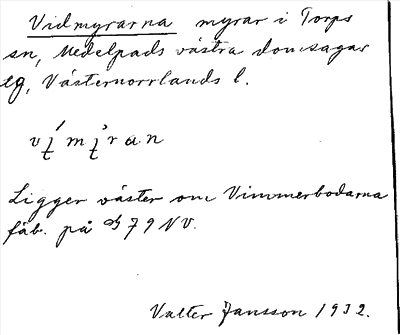 Vidmyrarna myrar i Torps
sn, Medelpads västra domsagas
tg, Västernorrlands l.
Ligger väster om Vimmerbodarna
fäb. på 79 NV.
Valter Jansson 1932.